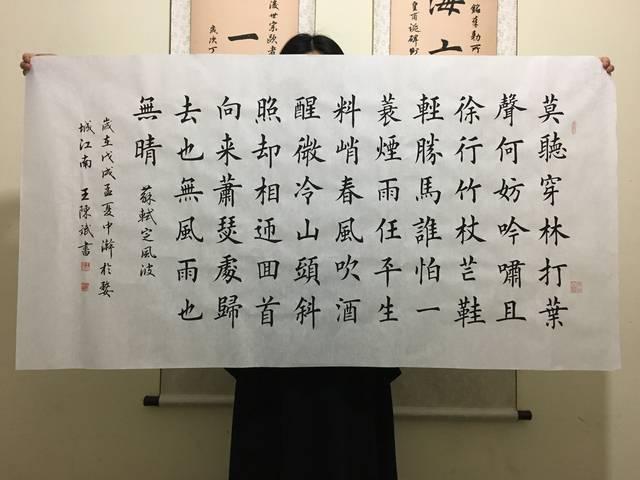 莫聽穿林打葉
聲何妨吟嘯且
徐行竹杖芒鞋
輕勝馬誰怕一
蓑煙雨任平生
料峭春風吹酒
醒微冷山頭斜
照却相迎囬首
向来蕭瑟處歸
去也無風雨也
無晴 蘇軾定風波
歲在戊戌孟夏中澣於婺
城江南 王陳斌書
銘奉勅所
皇甫誕碑
海
後世宗歐者
歲次丁
一